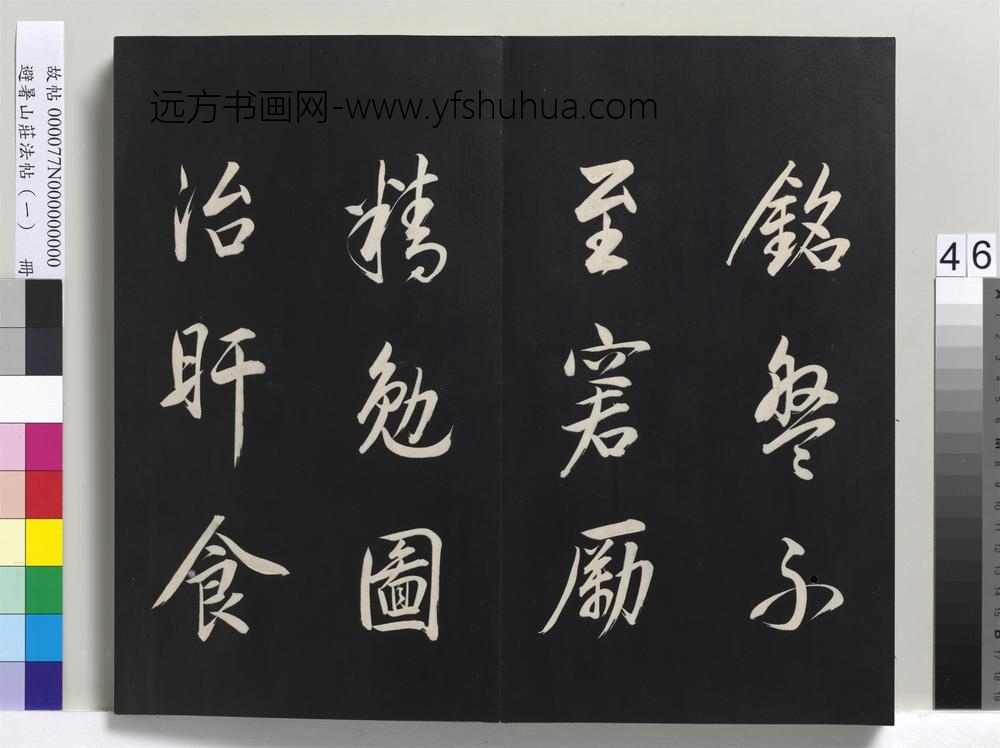 远方书画网-www.yfshuhua.com
銘盤不
至窘勵
精勉圖
治旰食
故帖 000077N000000000
避暑山莊法帖（一） 冊
46